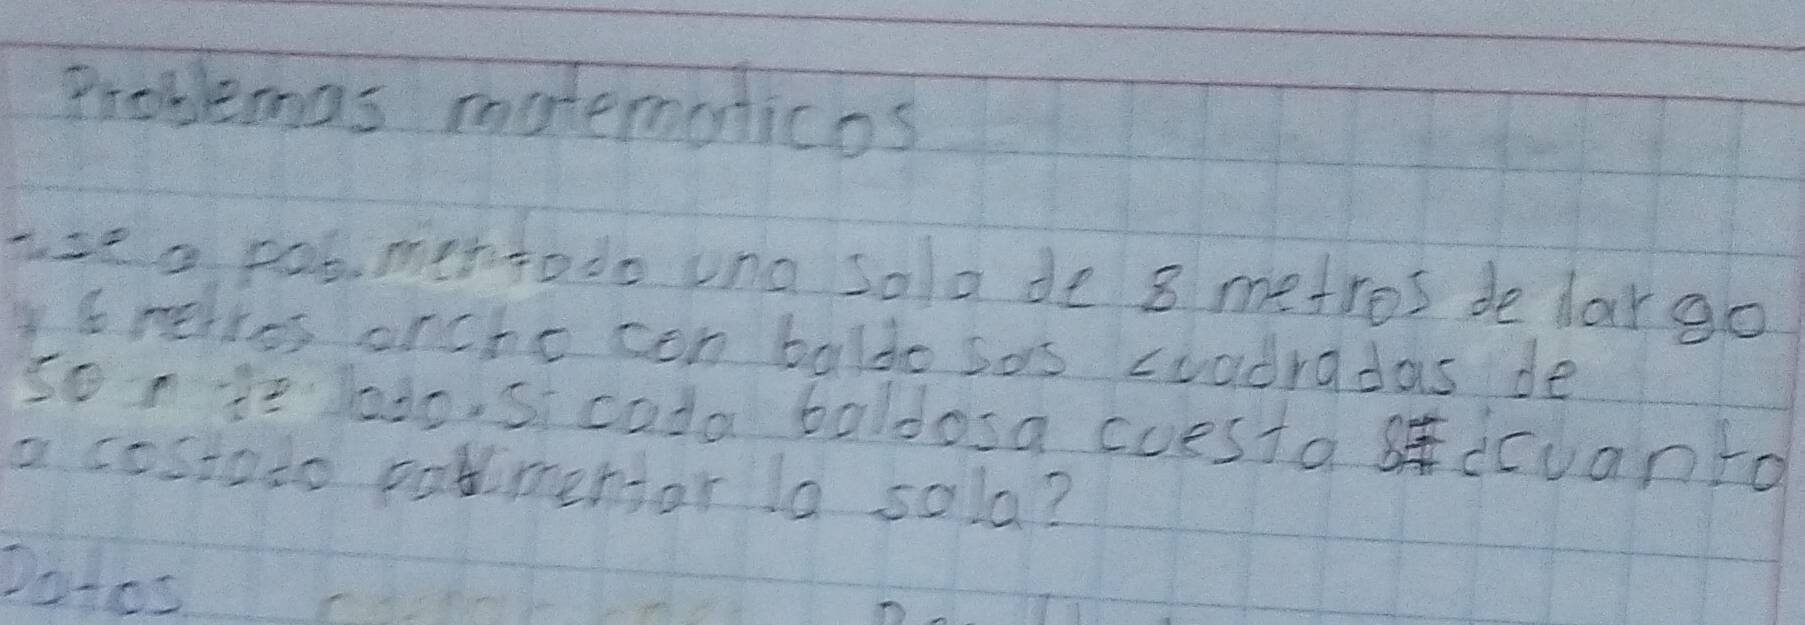 Problemas matematicos
se a pabimentado una sala de 8 metros de largo
y 6 metros ancho con baldosas cuadradas de
50 de lado. Si cada baldosa cuesta 8$ ¿Cuanto
a costado pabimentar la sala?
Datos